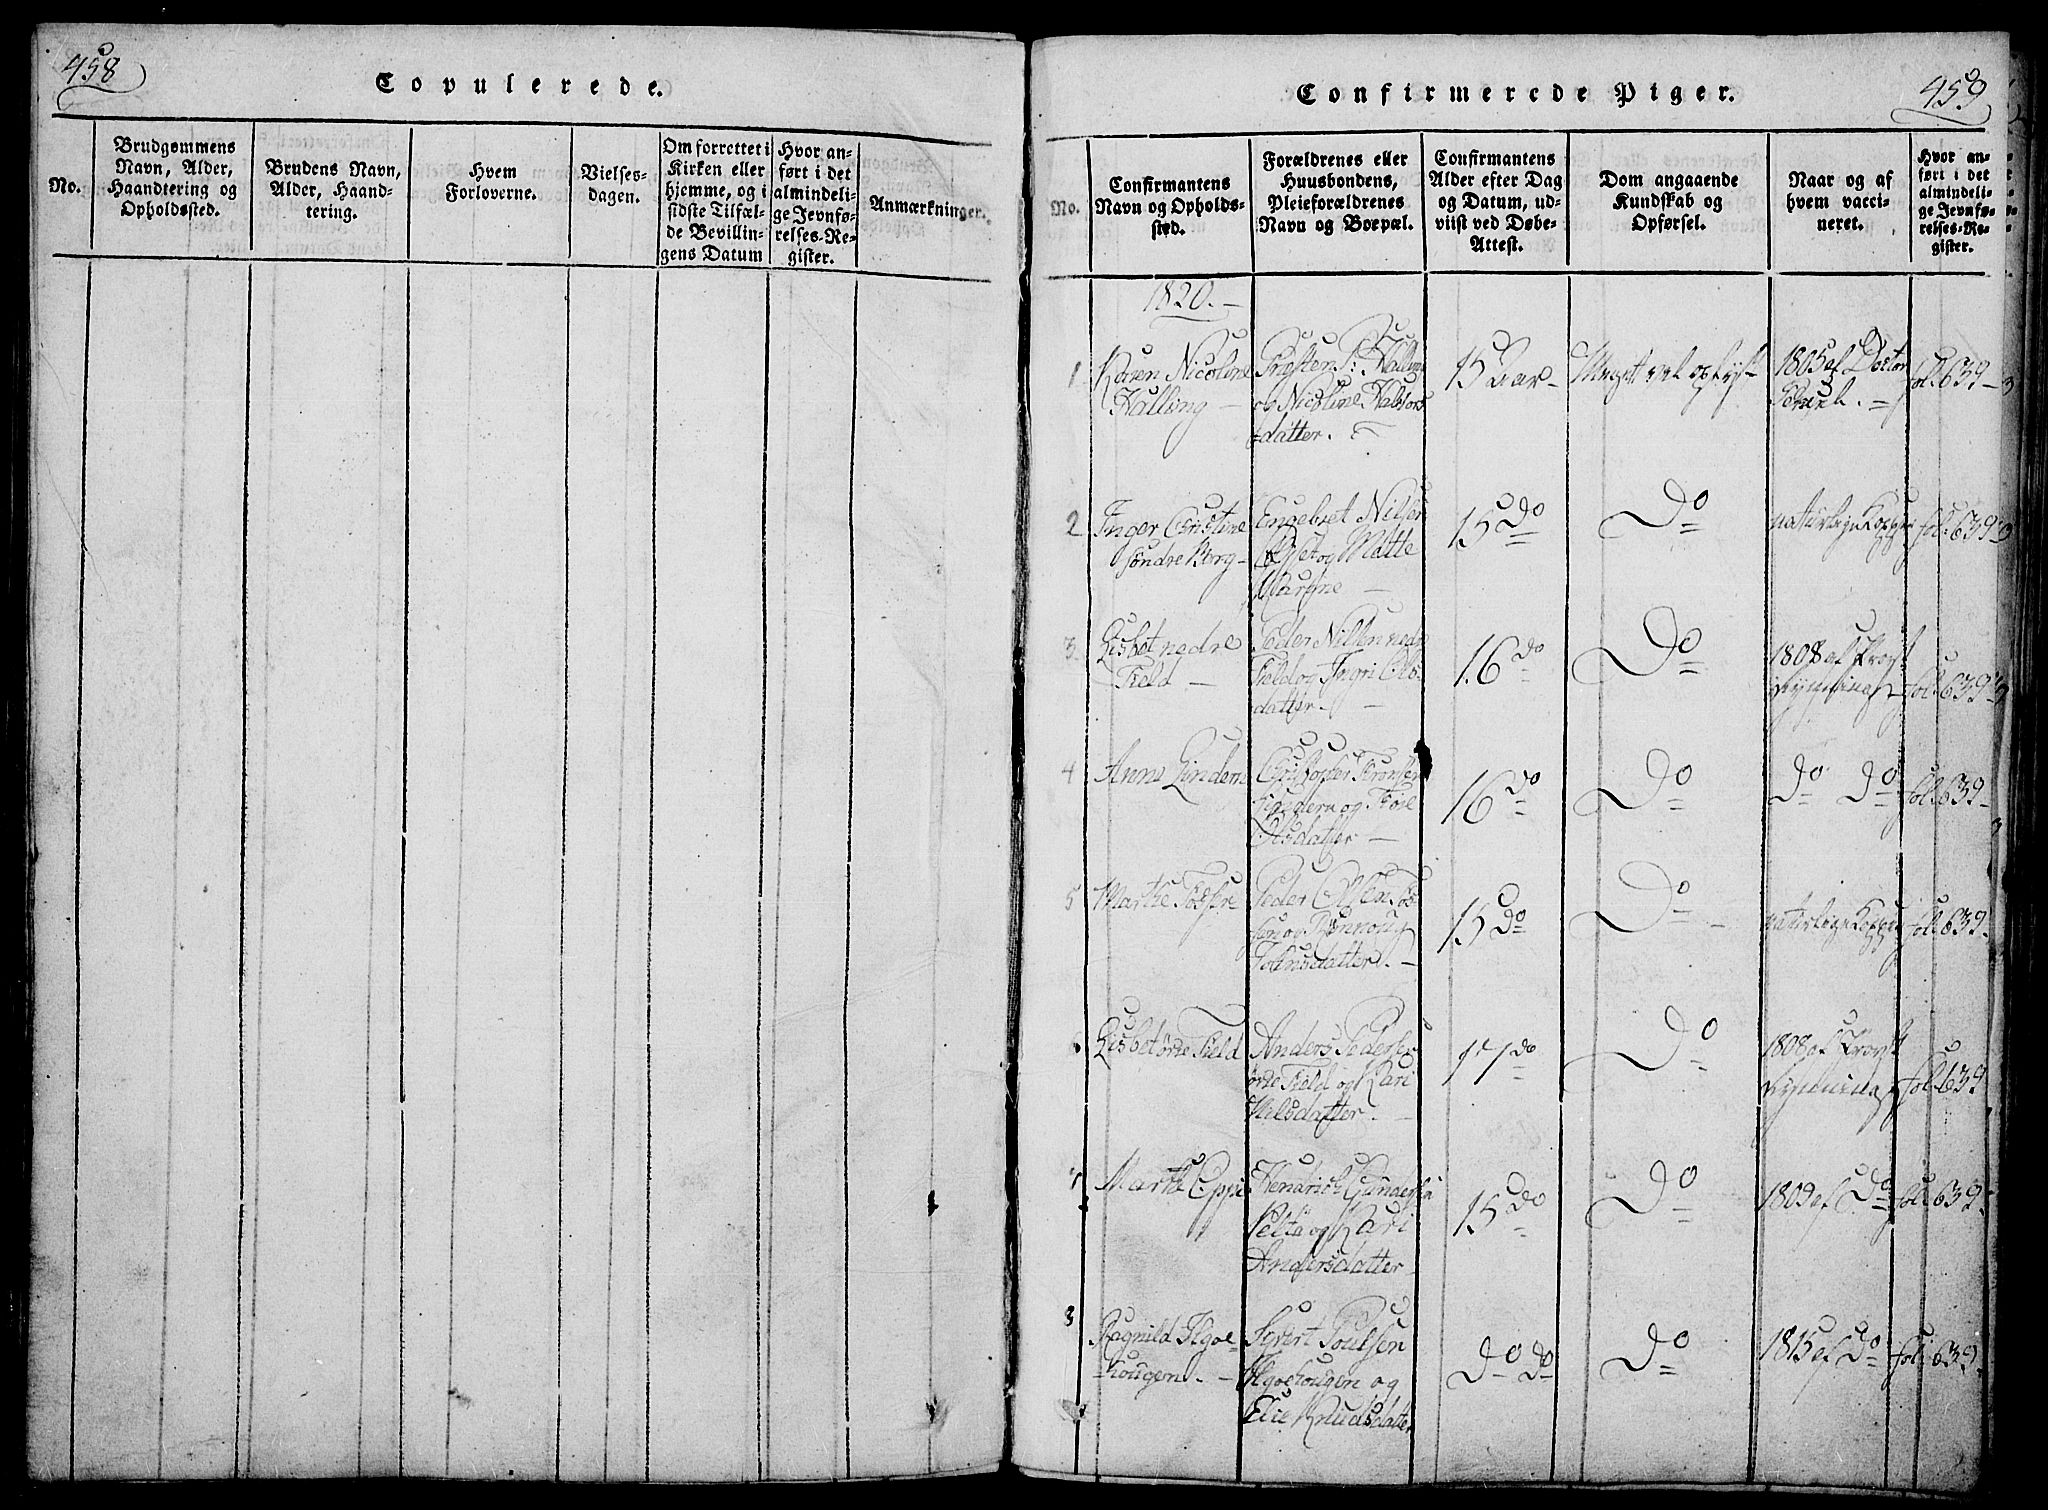 458
Copulerede.
No.
Brudgommens
Navn, Alder,
Haandtering og
Opholdssted.
Brudens Navn,
Alder, Haand-
tering.
Hvem
Forloverne.
Vielses-
dagen.
Om forrettet i
Kirken eller
hjemme, og i
sidste Tilfæl-
de Bevillin-
gens Datum
Hvor an-
ført i det
almindeli-
ge Jevnfø-
relses-Re-
gister.
Anmærkninger.
459
Confirmerede Piger.
No.
Confirmantens
Navn og Opholds-
sted.
Forældrenes eller
Huusbondens,
Pleieforældrenes
Navn og Boepæl.
Confirmantens
Alder efter Dag
og Datum, ud-
viist ved Døbe-
Attest.
Dom angaaende
Kundskab og
Opførsel.
Naar og af
hvem vacci-
neret.
Hvor an-
ført i det
almindeli-
ge Jevnfø-
relses-Re-
gister.
1820.
1
Karen Nicoline
Halling
Præsten P: Halling
og Nicoline
datter.
15 Aar
Meget vel oplyst
1805 af Doctor
fol. 639
2
Inger Cristine
søndre Berg
Engebret Nilsen
og Mette
15 Do
Do
naturlige Kopper
fol. 639
3
Lisbet nedre
Field
Peder Nilsen nedre
Field og Ingri Ols-
datter.
16 do
Do
1808 af Provst
fol. 639
4
Anne Lindern
Cristopher
Lindern og
Olsdatter
16 do
Do
Do Do
fol. 639
5
Marthe Fossen
Peder Olsen Fos-
sen og Rønnoug
Johnsdatter.
15 Do
Do
naturlige Kopper
fol. 639
6
Lisbet øvre Field
Anders Pedersen
øvre Field og Kari
Nilsdatter.
17 do
Do
1808 af Provst
fol. 639
7
Marthe
Hendrich Gundersen
og Kari
Andersdatter
15 do
Do
1809 af Do
fol. 639
8
Ragnild
hougen.
Syvert Poulsen
og
Elie Knudsdatter
Do Do
Do
1815 af Do
fol. 639